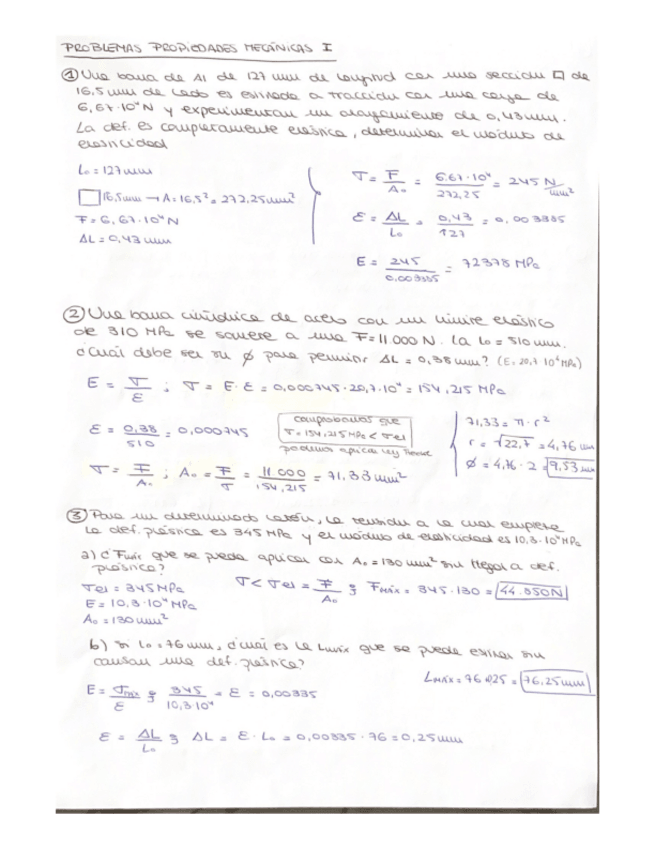 PROBLEMAS PROPIEDADES MECÁNICAS I
① Una barra de Al de 127 mm de longitud con una sección □ de
16,5 mm de lado es estirada a tracción con una carga de
6,67·10⁴ N y experimentan un alargamiento de 0,43 mm.
La def. es completamente elástica, determinar el módulo de
elasticidad
L₀ = 127 mm
□ 16,5 mm → A = 16,5² = 272,25 mm²
F = 6,67·10⁴ N
ΔL = 0,43 mm
σ = F/A₀ = 6,67·10⁴/272,25 = 245 N/mm²
ε = ΔL/L₀ = 0,43/127 = 0,003385
E = 245/0,003385 = 72378 MPa
② Una barra cilíndrica de acero con un límite elástico
de 310 MPa se somete a una F = 11 000 N. La L₀ = 510 mm.
¿Cuál debe ser su ø para permitir ΔL = 0,38 mm? (E: 20,7·10⁴ MPa)
E = σ/ε ; σ = E·ε = 0,000745·20,7·10⁴ = 154,215 MPa
ε = 0,38/510 = 0,000745
comprobamos que
σ = 154,215 MPa < σel
podemos aplicar ley Hooke
σ = F/A₀ ; A₀ = F/σ = 11 000/154,215 = 71,33 mm²
71,33 = π·r²
r = √22,7 = 4,76 mm
ø = 4,76·2 = 9,53 mm
③ Para un determinado latón, la tensión a la cual empieza
la def. plástica es 345 MPa y el módulo de elasticidad es 10,3·10⁴ MPa
a) ¿Fmáx que se puede aplicar con A₀ = 130 mm² sin llegar a def.
plástica?
σel = 345 MPa
E = 10,3·10⁴ MPa
A₀ = 130 mm²
σ < σel = F/A₀ ; Fmáx = 345·130 = 44.850 N
b) Si L₀ = 76 mm, ¿cuál es la Lmáx que se puede estirar sin
causar una def. plástica?
E = σmáx/ε ; 345/10,3·10⁴ = ε = 0,00335
Lmáx = 76 + 0,25 = 76,25 mm
ε = ΔL/L₀ ; ΔL = ε·L₀ = 0,00335·76 = 0,25 mm